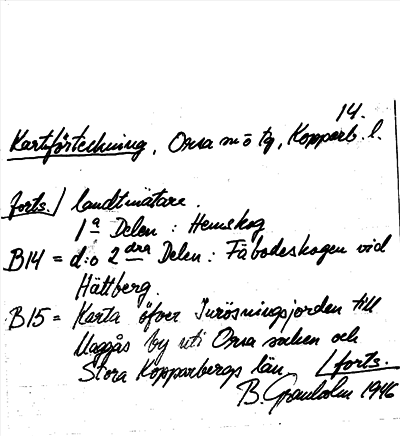 14.
Kartförteckning, Orsa m ö tg, Kopparb. l.
forts./ landtmätare.
1a Delen : Hemskog
B14 = d:o 2dra Delen : Fäbodeskogen vid
Hättberg.
B15 = Karta öfver Inrösningsjorden till
Maggås by uti Orsa socken och
Stora Kopparbergs län /forts.
B. Granholm 1946